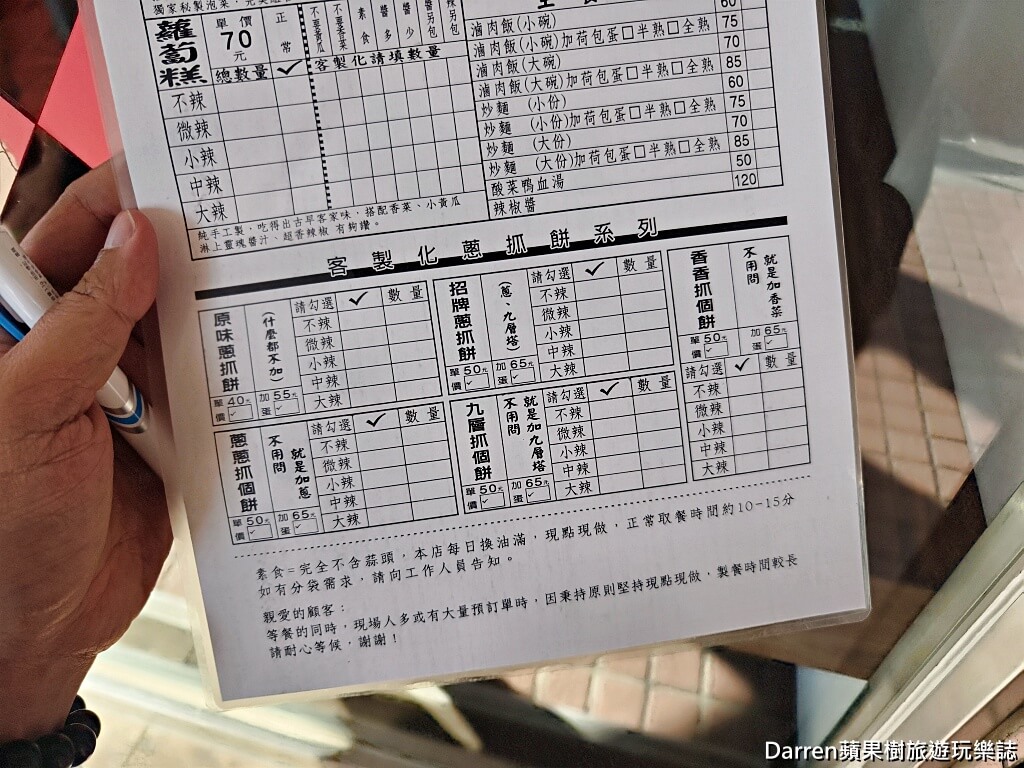 獨家秘製泡菜
蘿蔔糕
單價
70
元
正常
不要黃瓜
不要香菜
素食
醬多
醬少
醬另包
辣另包
總數量 ✓ 客製化請填數量
不辣
微辣
小辣
中辣
大辣
純手工製，吃得出古早客家味，搭配香菜、小黃瓜
淋上靈魂醬汁、超香辣椒 有夠讚。
60
滷肉飯(小碗) 75
滷肉飯(小碗)加荷包蛋□半熟□全熟 70
滷肉飯(大碗) 85
滷肉飯(大碗)加荷包蛋□半熟□全熟 60
炒麵 (小份) 75
炒麵 (小份)加荷包蛋□半熟□全熟 70
炒麵 (大份) 85
炒麵 (大份)加荷包蛋□半熟□全熟 50
酸菜鴨血湯 120
辣椒醬
客製化蔥抓餅系列
原味蔥抓餅
(什麼都不加)
單價 40元 ✓
加蛋 55元 ✓
請勾選 ✓ 數量
不辣
微辣
小辣
中辣
大辣
招牌蔥抓餅
(蔥、九層塔)
單價 50元 ✓
加蛋 65元 ✓
請勾選 ✓ 數量
不辣
微辣
小辣
中辣
大辣
香香抓個餅
不用問
就是加香菜
單價 50元 ✓
加蛋 65元 ✓
請勾選 ✓ 數量
不辣
微辣
小辣
中辣
大辣
蔥蔥抓個餅
不用問
就是加蔥
單價 50元 ✓
加蛋 65元 ✓
請勾選 ✓ 數量
不辣
微辣
小辣
中辣
大辣
九層抓個餅
不用問
就是加九層塔
單價 50元 ✓
加蛋 65元 ✓
請勾選 ✓ 數量
不辣
微辣
小辣
中辣
大辣
素食=完全不含蒜頭，本店每日換油滿，現點現做，正常取餐時間約10-15分
如有分袋需求，請向工作人員告知。
親愛的顧客：
等餐的同時，現場人多或有大量預訂單時，因秉持原則堅持現點現做，製餐時間較長
請耐心等候，謝謝！
Darren蘋果樹旅遊玩樂誌